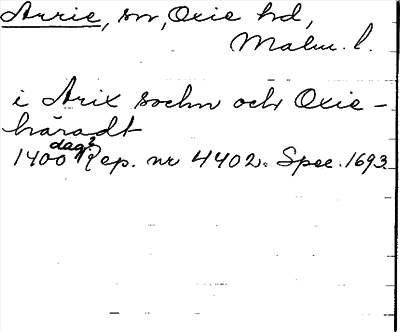 Arrie, sn, Oxie hd,
Malm. l.
i Arix sochn och Oxie-
häradt
1400 dag? Rep. nr 4402. Spec. 1693.